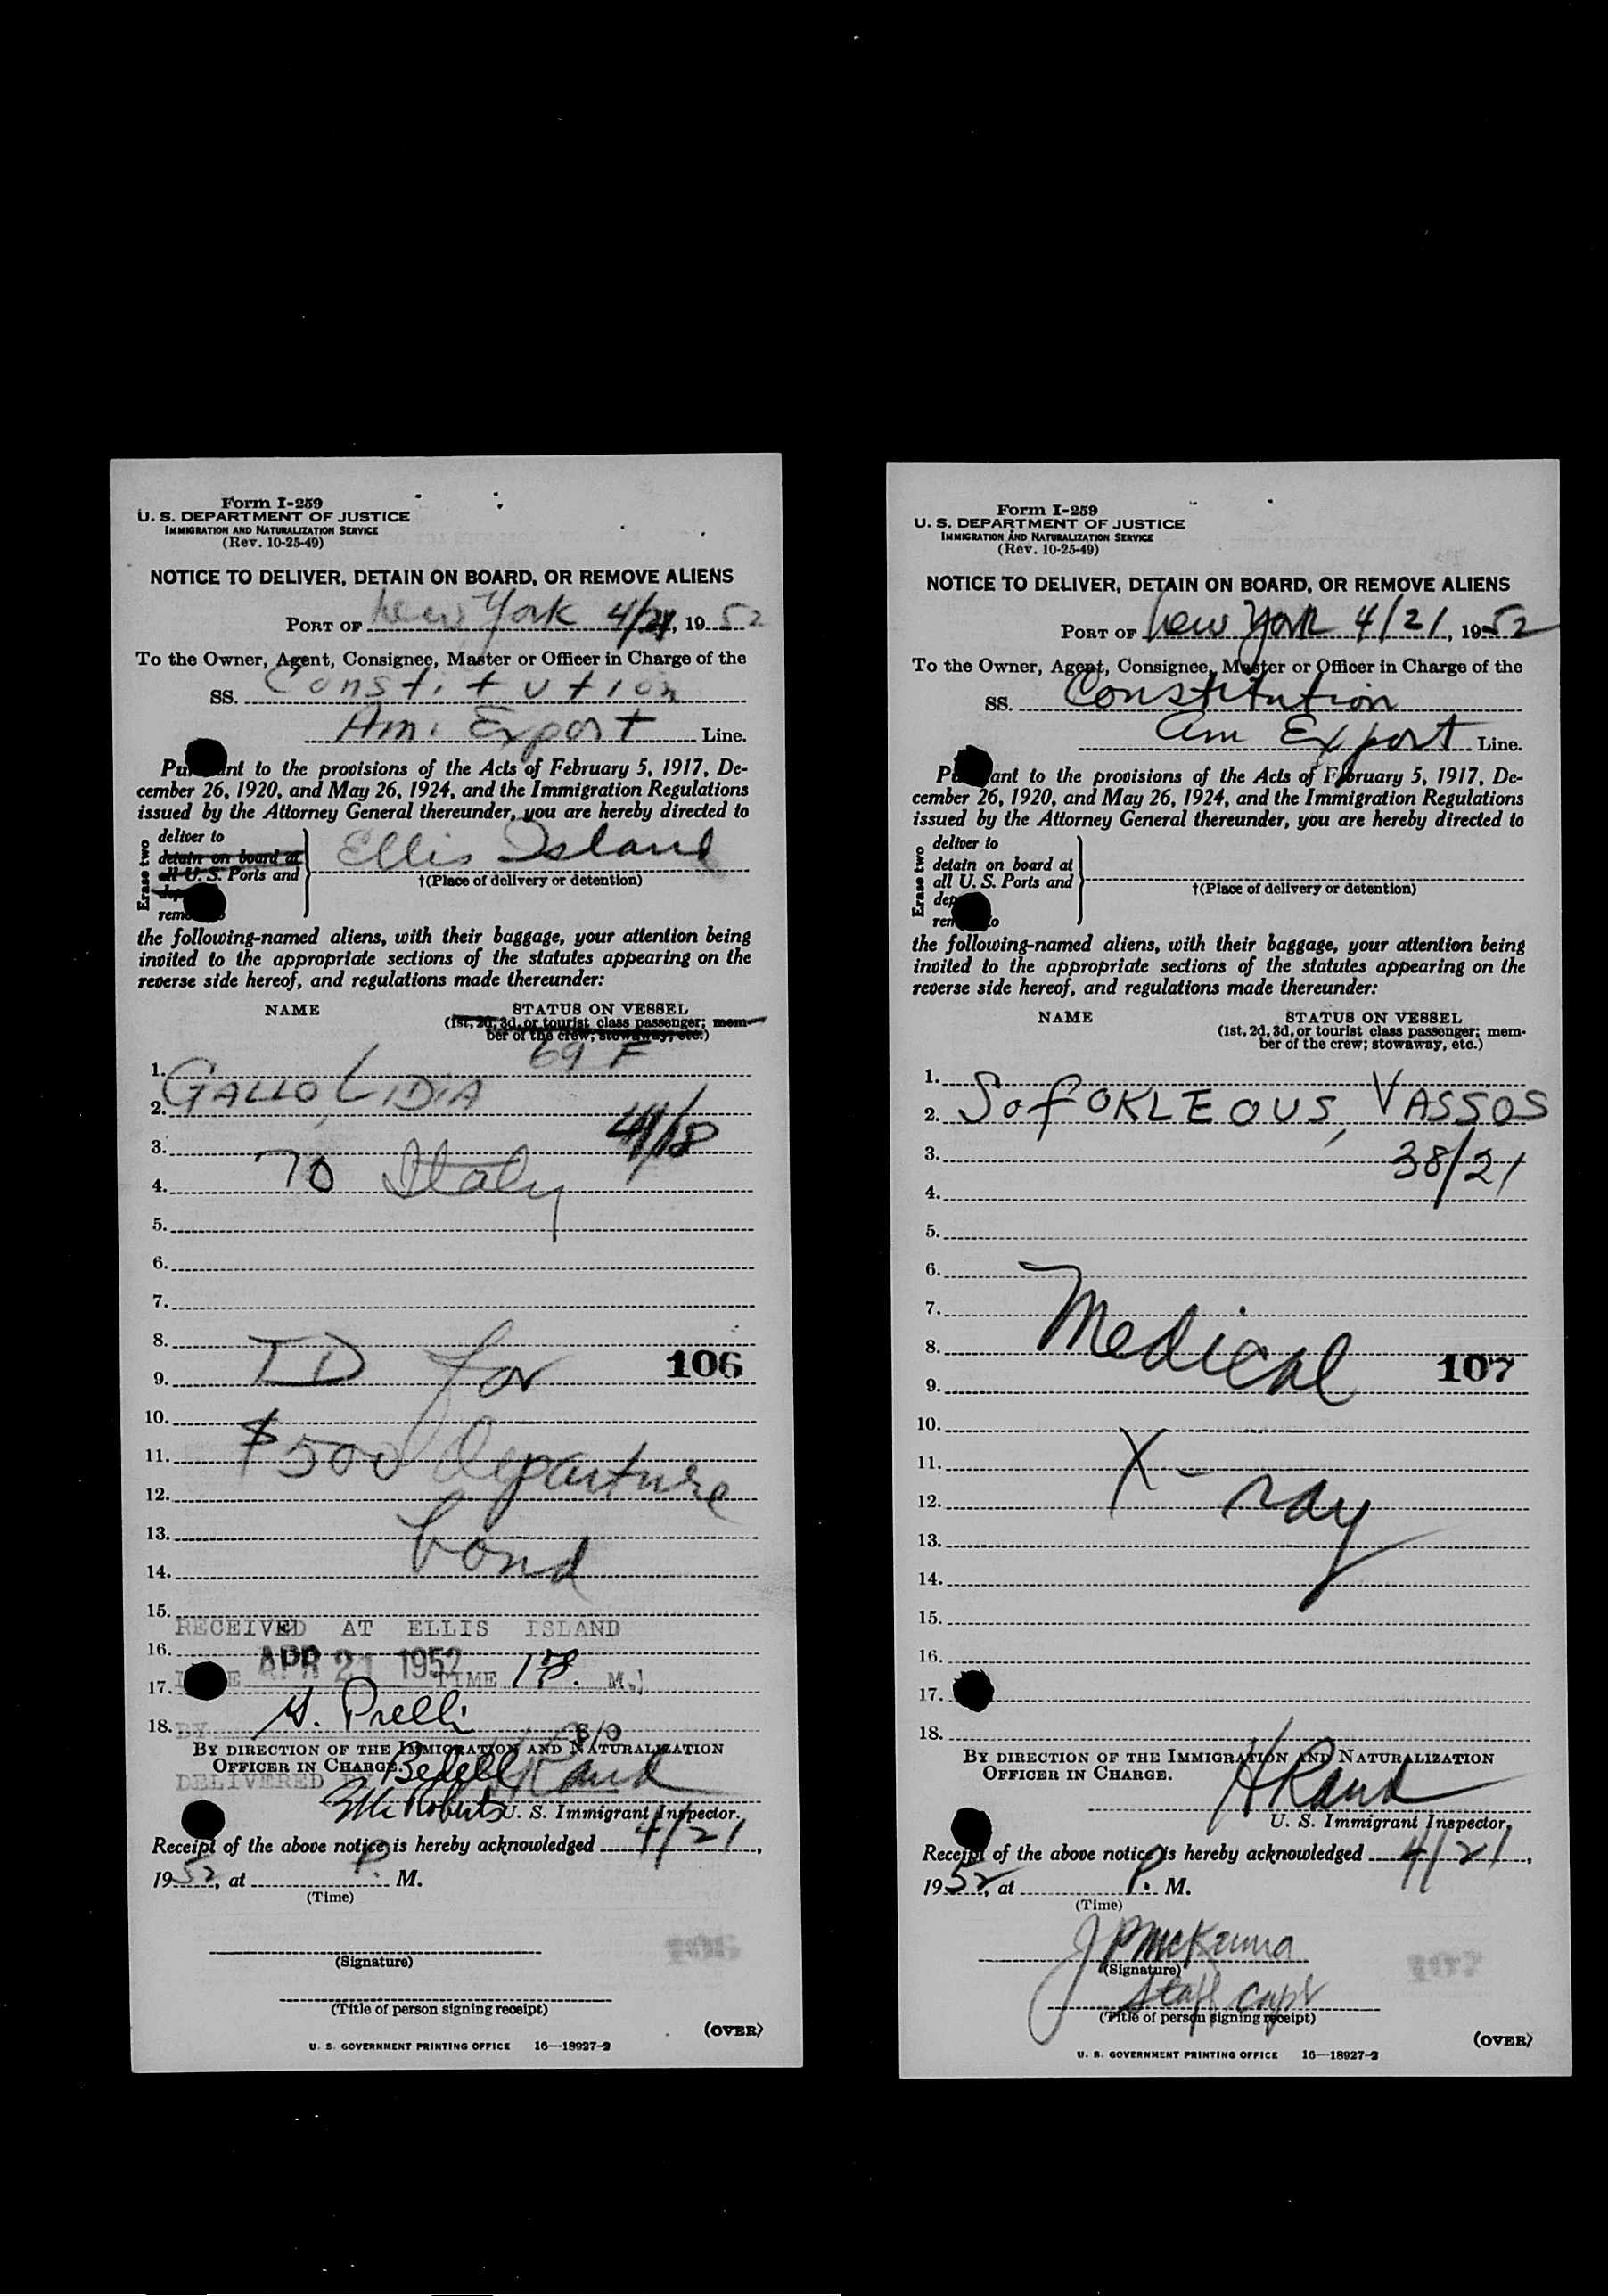 Form I-259
U. S. DEPARTMENT OF JUSTICE
IMMIGRATION AND NATURALIZATION SERVICE
(Rev. 10-25-49)
NOTICE TO DELIVER, DETAIN ON BOARD, OR REMOVE ALIENS
PORT OF New York 4/21, 1952
To the Owner, Agent, Consignee, Master or Officer in Charge of the
SS. Constitution
Am. Export Line.
to the provisions of the Acts of February 5, 1917, De-
cember 26, 1920, and May 26, 1924, and the Immigration Regulations
issued by the Attorney General thereunder, you are hereby directed to
Erase two
deliver to
detain on board at
all U. S. Ports and
Ellis Island
†(Place of delivery or detention)
the following-named aliens, with their baggage, your attention being
invited to the appropriate sections of the statutes appearing on the
reverse side hereof, and regulations made thereunder:
NAME STATUS ON VESSEL
(1st, 2d, 3d, or tourist class passenger; mem-
ber of the crew; stowaway, etc.)
69 F
1.
GALLO, LIDIA
2.
3. 41/18
70 Italy
4.
5.
6.
7.
8.
TD for 106
9.
10.
$500 departure
11.
12.
13.
bond
14.
15.
RECEIVED AT ELLIS ISLAND
16.
APR 21 1952 TIME M.
17.
18. BY
BY DIRECTION OF THE IMMIGRATION AND NATURALIZATION
OFFICER IN CHARGE. Bedell HRand
DELIVERED BY
U. S. Immigrant Inspector.
Receipt of the above notice is hereby acknowledged 4/21,
1952, at P. M.
(Time)
(Signature)
(Title of person signing receipt)
(OVER)
U. S. GOVERNMENT PRINTING OFFICE 16—18927-2
Form I-259
U. S. DEPARTMENT OF JUSTICE
IMMIGRATION AND NATURALIZATION SERVICE
(Rev. 10-25-49)
NOTICE TO DELIVER, DETAIN ON BOARD, OR REMOVE ALIENS
PORT OF New York 4/21, 1952
To the Owner, Agent, Consignee, Master or Officer in Charge of the
SS. Constitution
Am Export Line.
to the provisions of the Acts of February 5, 1917, De-
cember 26, 1920, and May 26, 1924, and the Immigration Regulations
issued by the Attorney General thereunder, you are hereby directed to
Erase two
deliver to
detain on board at
all U. S. Ports and
†(Place of delivery or detention)
the following-named aliens, with their baggage, your attention being
invited to the appropriate sections of the statutes appearing on the
reverse side hereof, and regulations made thereunder:
NAME STATUS ON VESSEL
(1st, 2d, 3d, or tourist class passenger; mem-
ber of the crew; stowaway, etc.)
1.
2. SofOKLEOUS, VASSOS
3. 38/21
4.
5.
6.
7.
8. Medical 107
9.
10.
11.
X-ray
12.
13.
14.
15.
16.
17.
18.
BY DIRECTION OF THE IMMIGRATION AND NATURALIZATION
OFFICER IN CHARGE.
HRand
U. S. Immigrant Inspector.
Receipt of the above notice is hereby acknowledged 4/21,
1952, at P. M.
(Time)
J P McKenna
(Signature)
Staff Capt
(Title of person signing receipt)
(OVER)
U. S. GOVERNMENT PRINTING OFFICE 16—18927-2